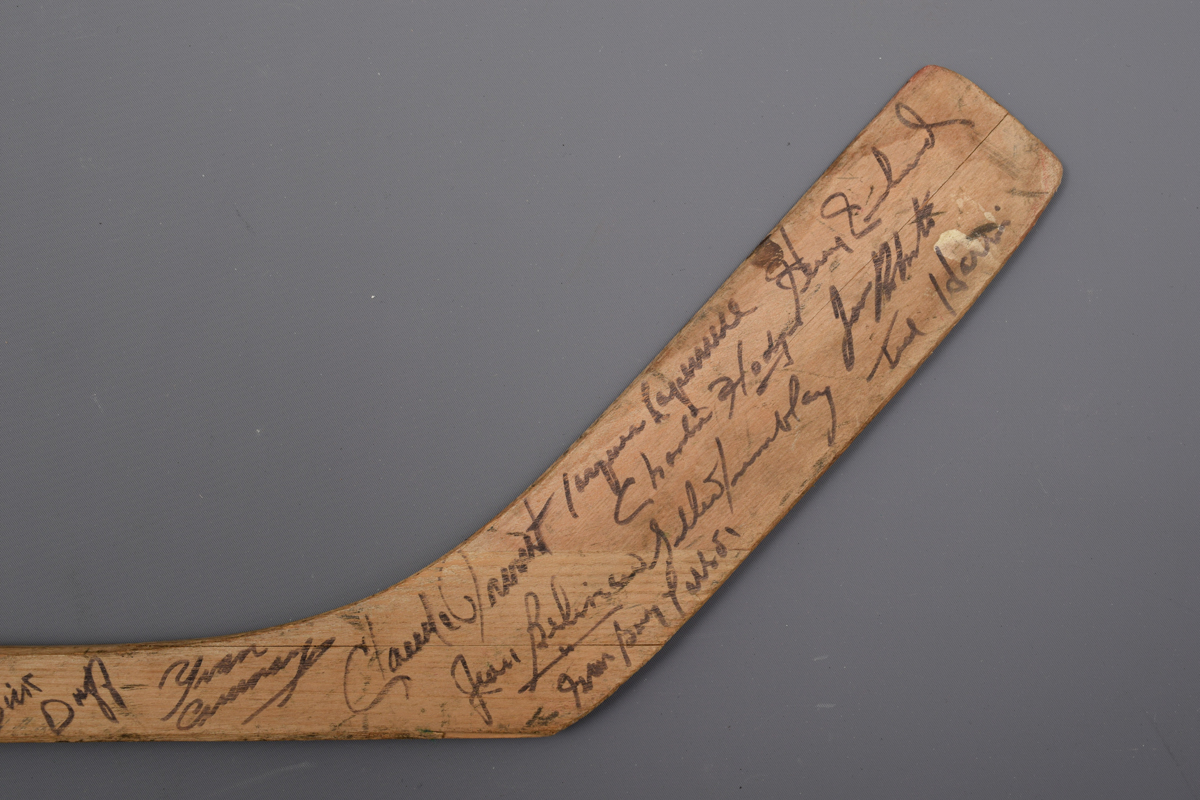 Dick
Duff
Yvan
Cournoyer
Claude Provost
Jacques Laperriere
Henry Richard
Charlie Hodge
Jean Beliveau
Gilles Tremblay
Jean Guy Talbot
Jim Roberts
Ted Harris